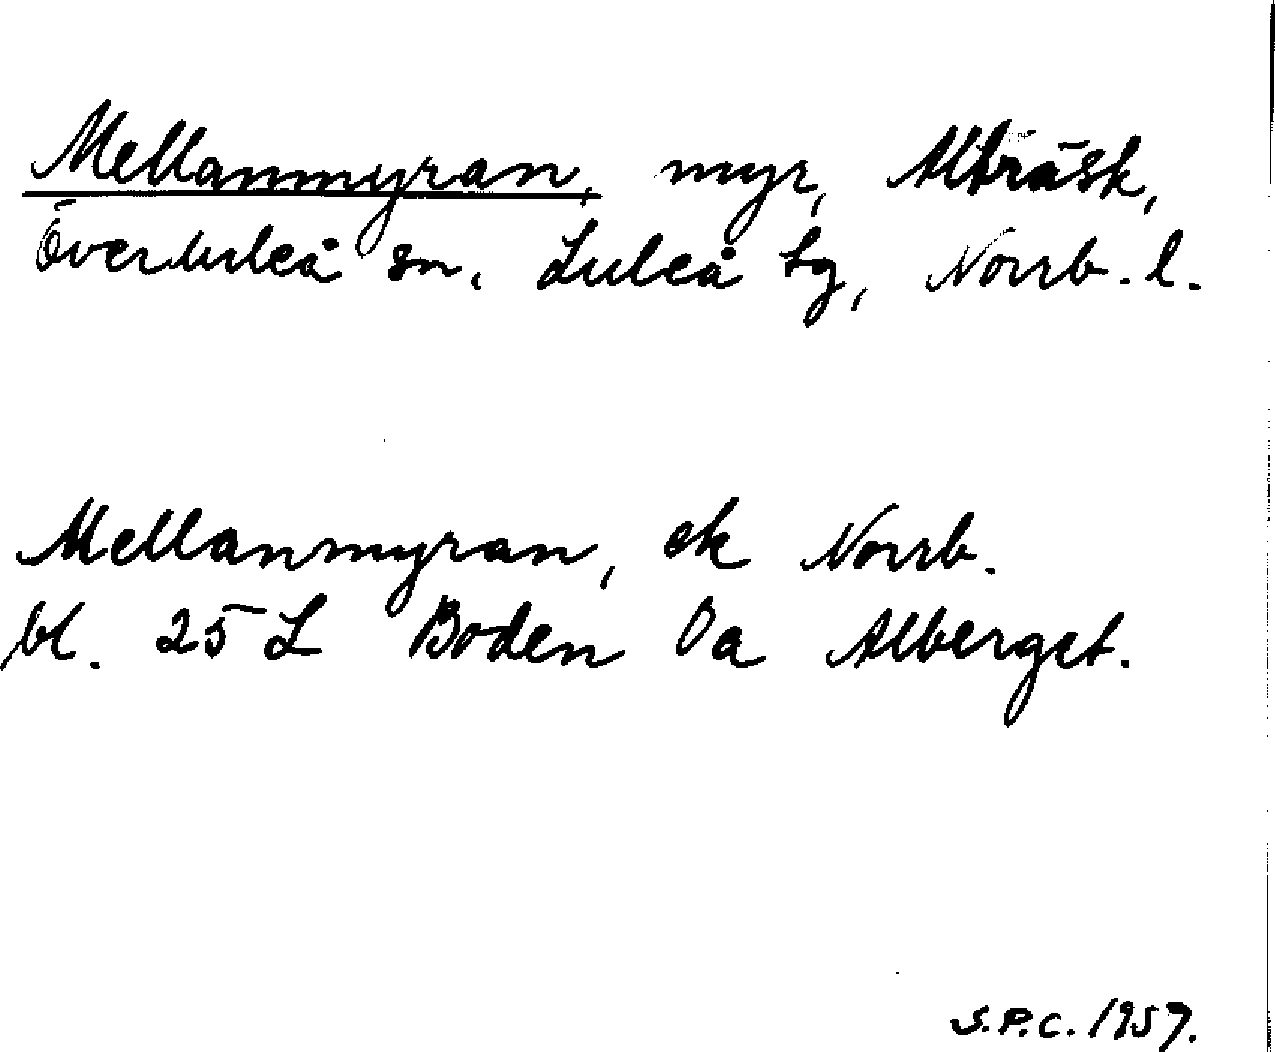 Mellanmyran, myr, Alträsk,
Överluleå sn, Luleå tg, Norrb. l.
Mellanmyran, ek Norrb.
bl. 25 L Boden Oa Alberget.
S.P.C. 1957.